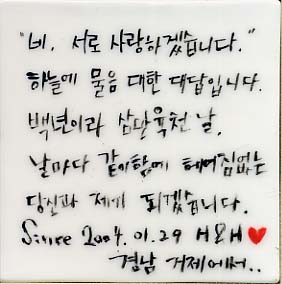 "네, 서로 사랑하겠습니다."
하늘에 물음 대한 대답입니다.
백년이라 삼만육천 날.
날마다 같이함에 헤어짐없는
당신과 제가 되겠습니다.
Since 2004. 01.29 H&H ♥
경남 거제에서..